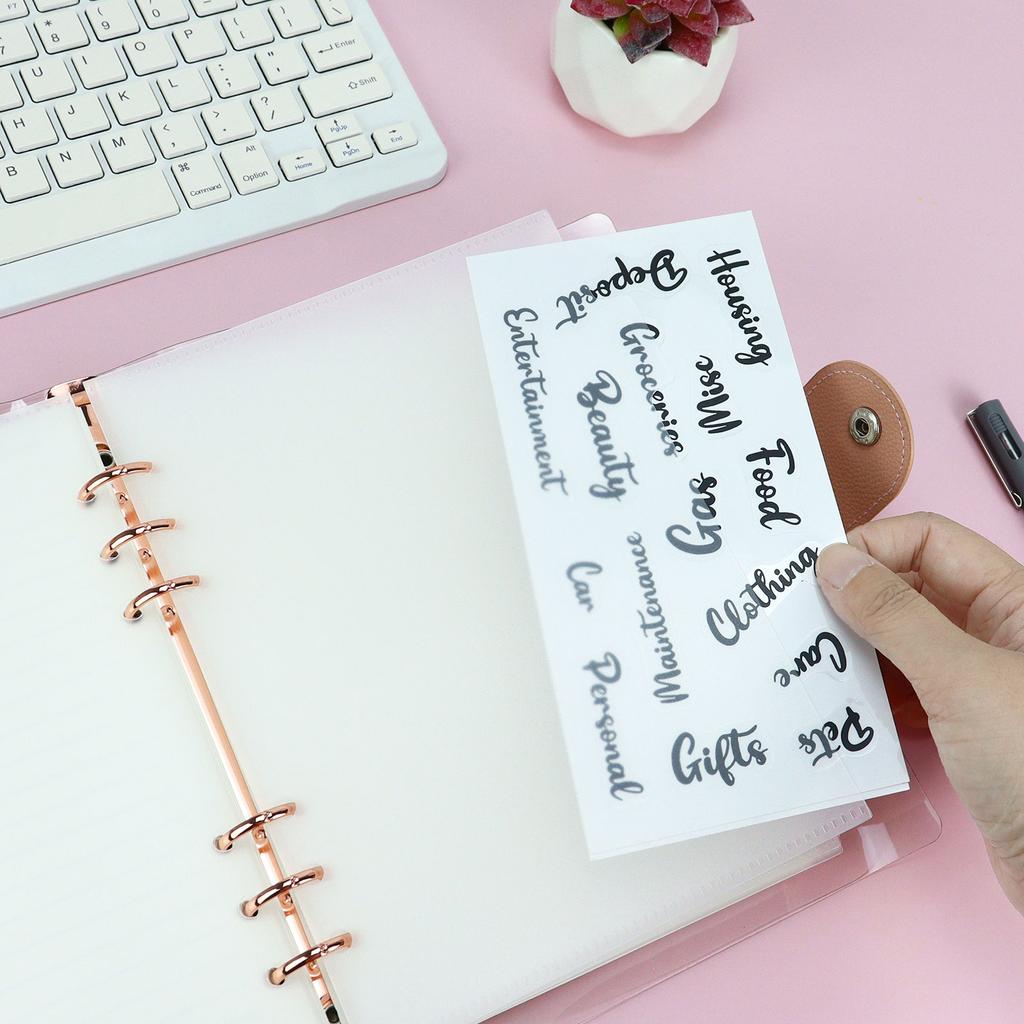 7
* 8
( 9
) 0
U
I
O
P
{ [
} ]
Enter
H
J
K
L
: ;
" '
Shift
B
N
M
< ,
> .
? /
PgUp
Command
Alt
Option
Home
PgDn
End
Housing
Deposit
Entertainment
Groceries
Misc
Beauty
Food
Gas
Clothing
Maintenance
Car
Care
Personal
Gifts
Pets